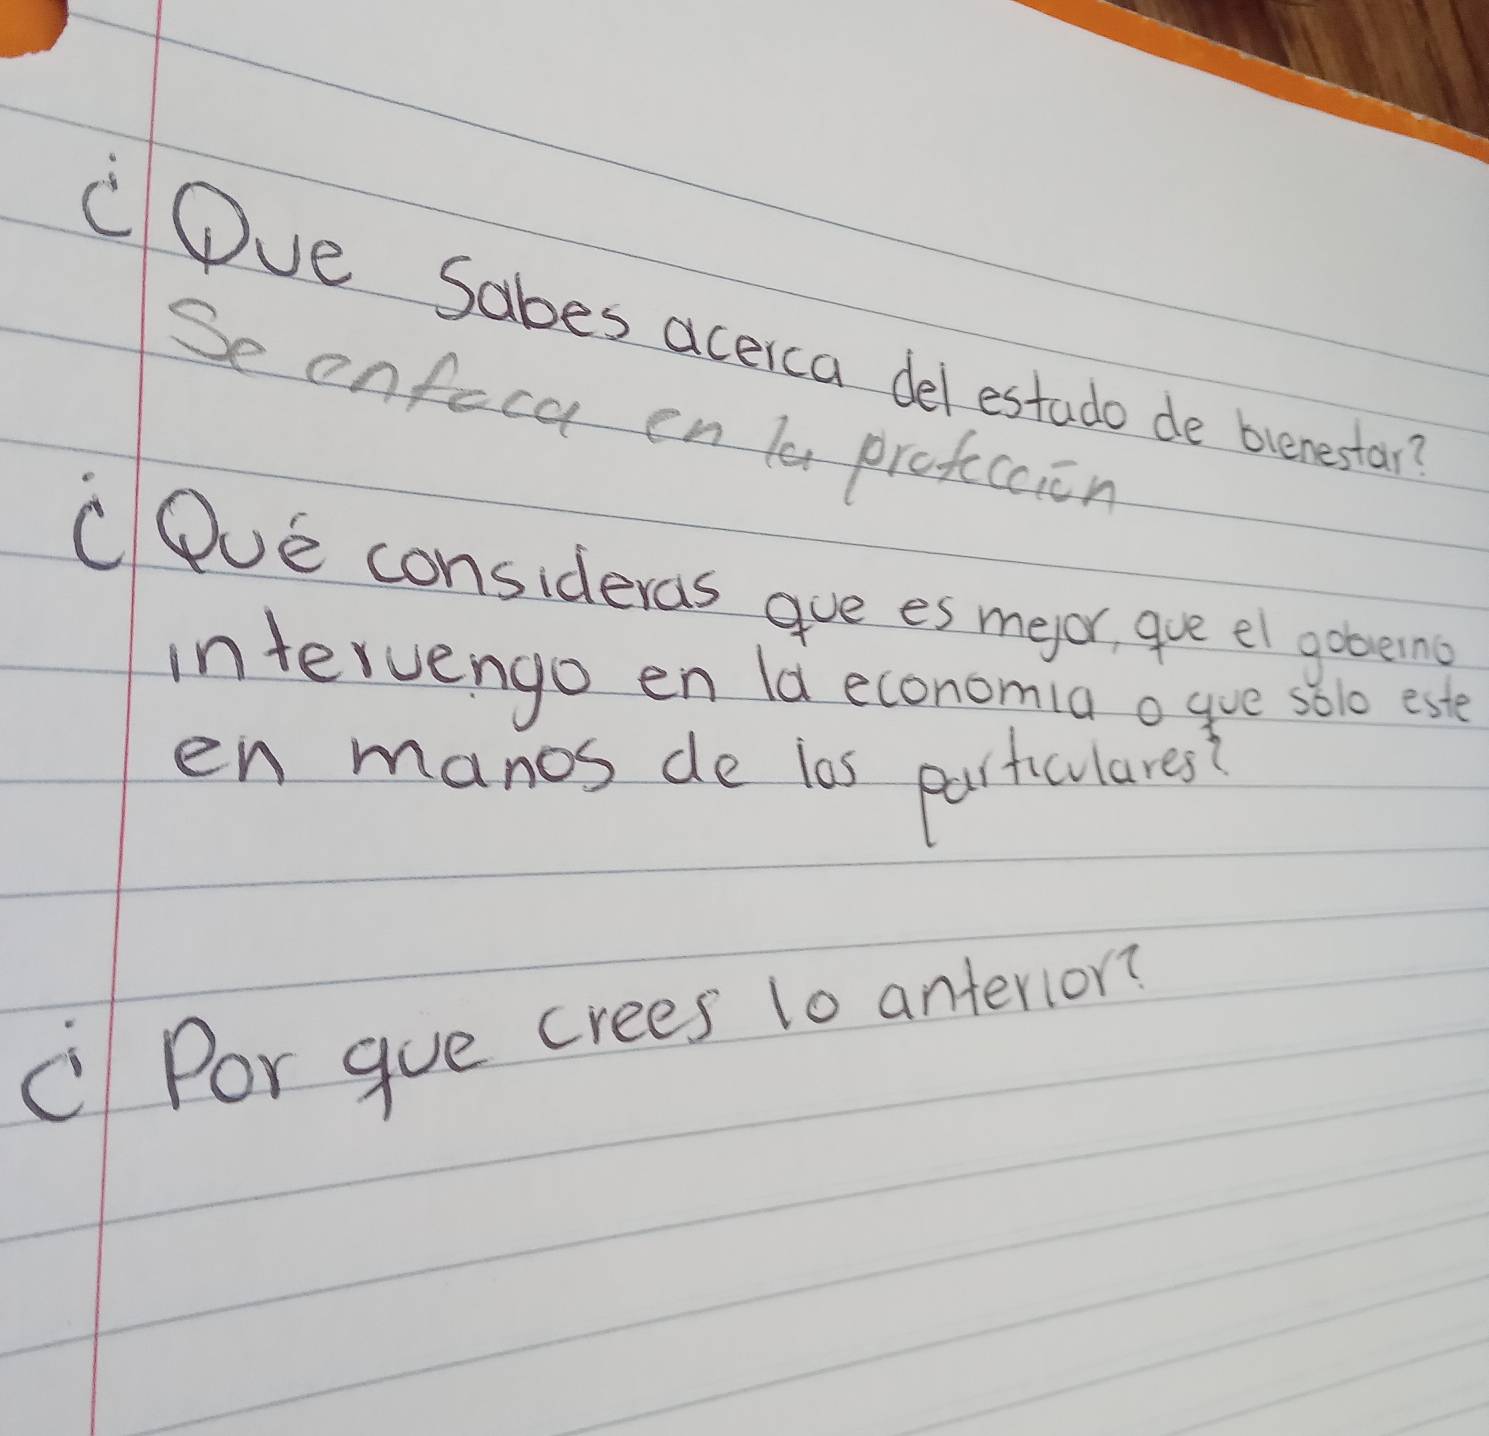 ¿Que Sabes acerca del estado de bienestar?
Se enfoca en la protección
¿Qué consideras que es mejor, que el gobierno
intervengo en la economia o que sólo este
en manos de los particulares?
¿Por que crees lo anterior?